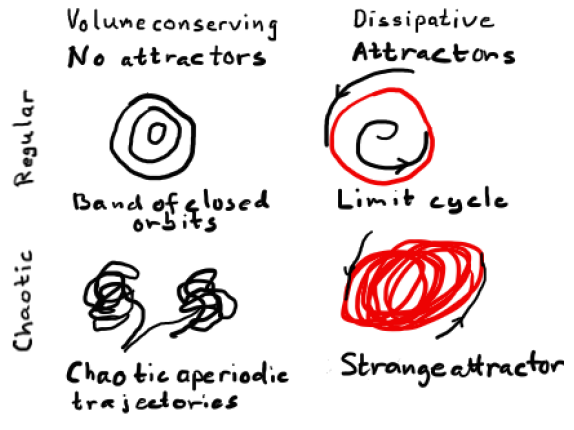 Volume conserving
No attractors
Dissipative
Attractons
Regular
Band of closed
orbits
Limit cycle
Chaotic
Chaotic aperiodic
trajectories
Strange attractor